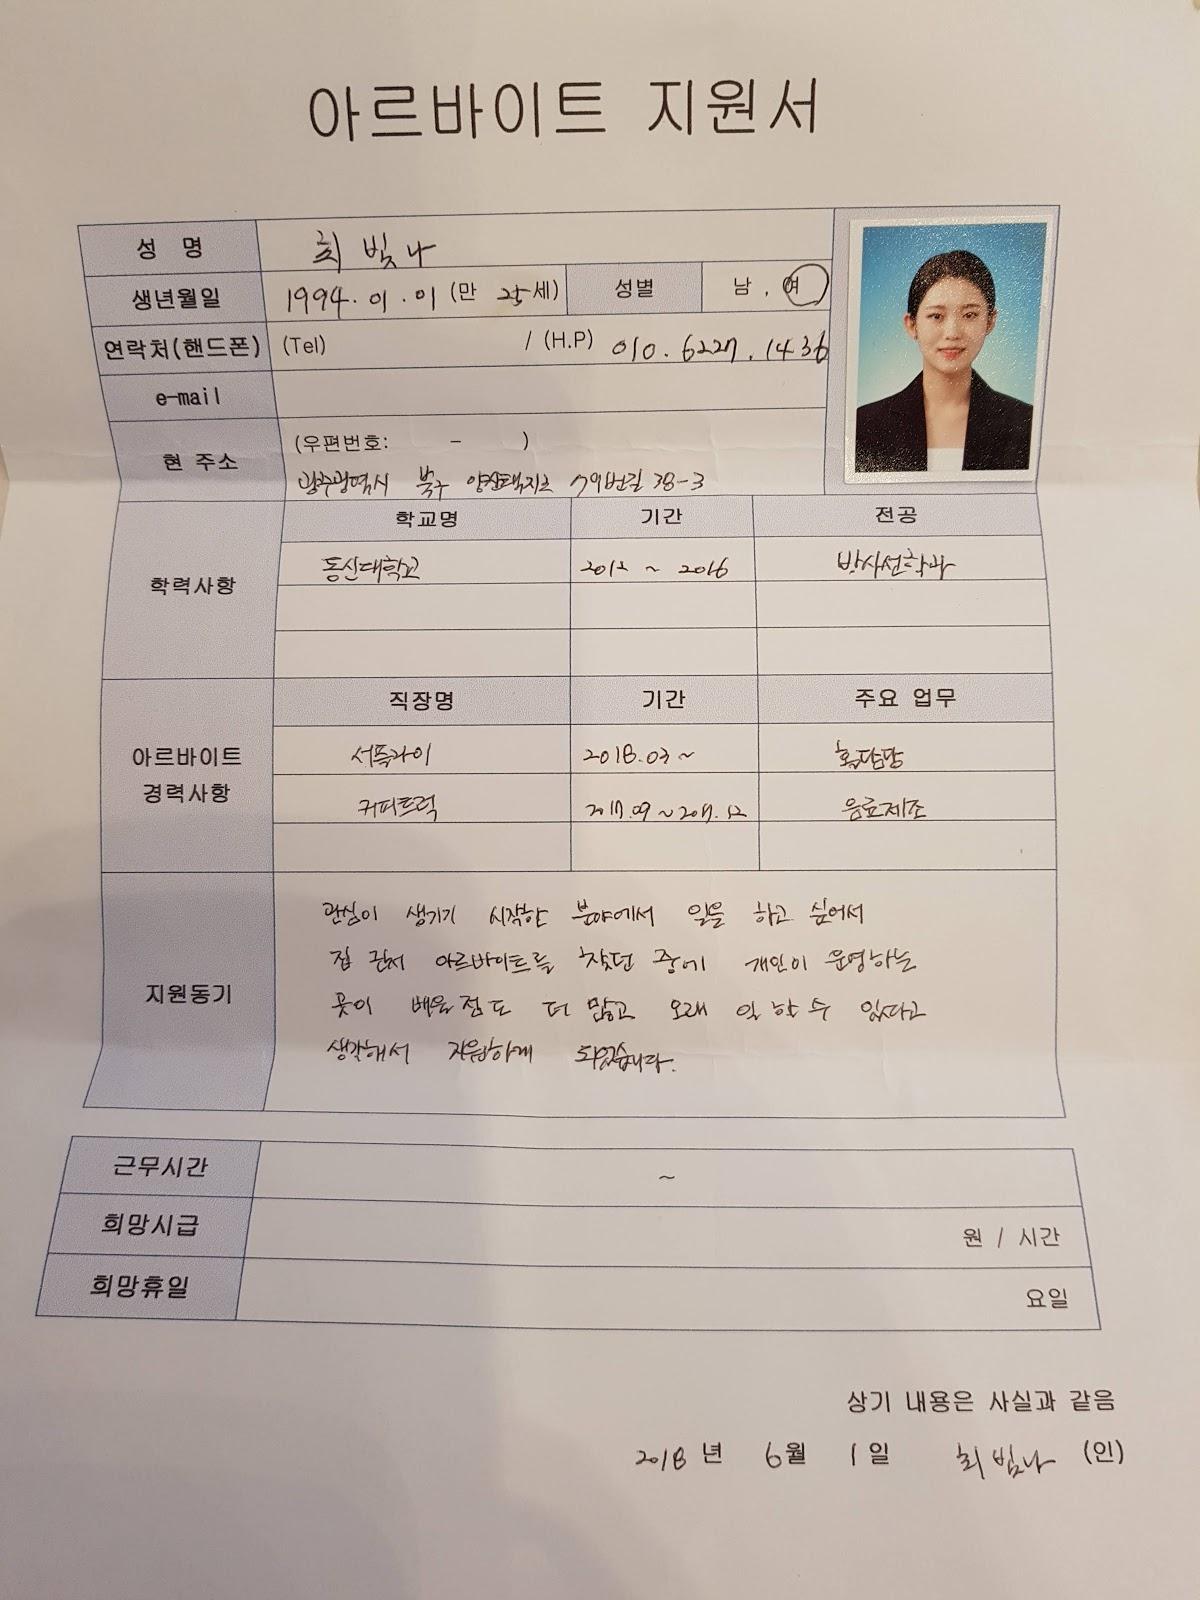 아르바이트 지원서
성 명 최빛나
생년월일 1994.01.01 (만 25세) 성별 남 , 여
연락처(핸드폰) (Tel) / (H.P) 010.6227.1436
e-mail
현 주소 (우편번호: - )
광주광역시 북구 양산택지로 79번길 38-3
학력사항 학교명 기간 전공
동신대학교 2012 ~ 2016 방사선학과
아르바이트 경력사항 직장명 기간 주요 업무
서플라이 2018.03 ~ 홀담당
커피트럭 2017.09 ~ 2017.12 음료제조
지원동기
관심이 생기기 시작한 분야에서 일을 하고 싶어서
집 근처 아르바이트를 찾던 중에 개인이 운영하는
곳이 배울점도 더 많고 오래 일 할 수 있다고
생각해서 지원하게 되었습니다.
근무시간 ~
희망시급 원 / 시간
희망휴일 요일
상기 내용은 사실과 같음
2018 년 6월 1일 최빛나 (인)